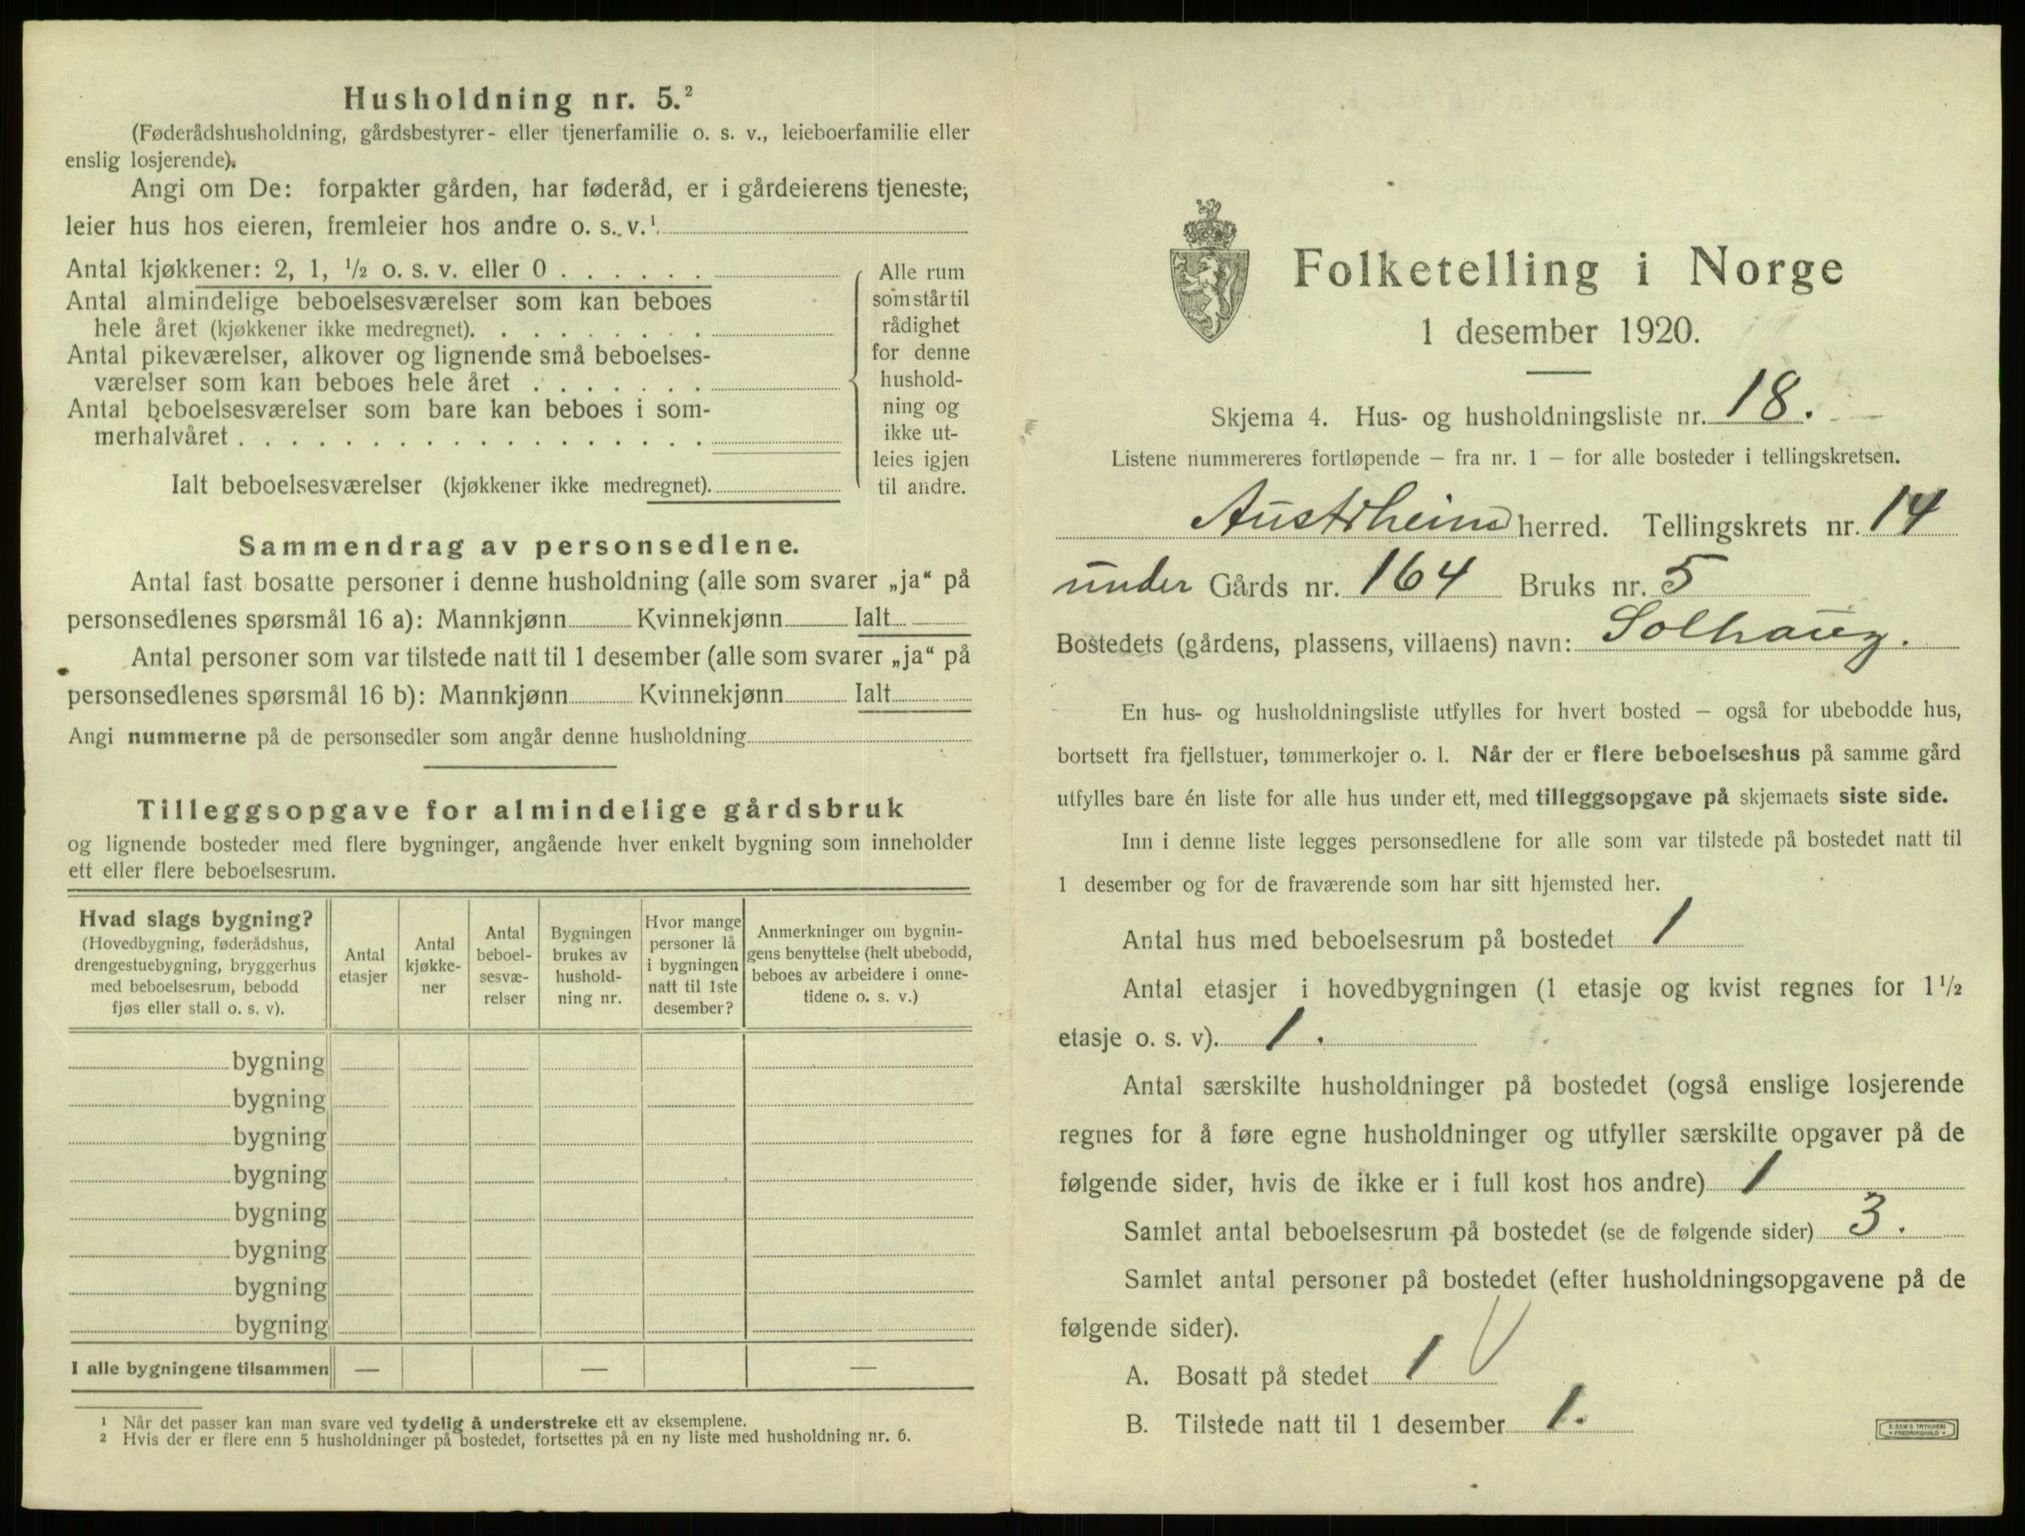 Husholdning nr. 5.²
(Føderådshusholdning, gårdsbestyrer- eller tjenerfamilie o. s. v., leieboerfamilie eller
enslig losjerende).
Angi om De: forpakter gården, har føderåd, er i gårdeierens tjeneste,
leier hus hos eieren, fremleier hos andre o. s. v.¹
Antal kjøkkener: 2, 1, ½ o. s. v. eller 0 . . . . . .
Antal almindelige beboelsesværelser som kan beboes
hele året (kjøkkener ikke medregnet). . . . . . . . .
Antal pikeværelser, alkover og lignende små beboelses-
værelser som kan beboes hele året . . . . . . .
Antal beboelsesværelser som bare kan beboes i som-
merhalvåret . . . . . . . . . . . . . . . . . .
Ialt beboelsesværelser (kjøkkener ikke medregnet).
Alle rum
som står til
rådighet
for denne
hushold-
ning og
ikke ut-
leies igjen
til andre.
Sammendrag av personsedlene.
Antal fast bosatte personer i denne husholdning (alle som svarer „ja“ på
personsedlenes spørsmål 16 a): Mannkjønn Kvinnekjønn Ialt
Antal personer som var tilstede natt til 1 desember (alle som svarer „ja“ på
personsedlenes spørsmål 16 b): Mannkjønn Kvinnekjønn Ialt
Angi nummerne på de personsedler som angår denne husholdning
Tilleggsopgave for almindelige gårdsbruk
og lignende bosteder med flere bygninger, angående hver enkelt bygning som inneholder
ett eller flere beboelsesrum.
Hvad slags bygning?
(Hovedbygning, føderådshus,
drengestuebygning, bryggerhus
med beboelsesrum, bebodd
fjøs eller stall o. s. v).
Antal
etasjer
Antal
kjøkke-
ner
Antal
beboel-
sesvæ-
relser
Bygningen
brukes av
hushold-
ning nr.
Hvor mange
personer lå
i bygningen
natt til 1ste
desember?
Anmerkninger om bygnin-
gens benyttelse (helt ubebodd,
beboes av arbeidere i onne-
tidene o. s. v.)
bygning
bygning
bygning
bygning
bygning
bygning
bygning
bygning
I alle bygningene tilsammen — — —
¹ Når det passer kan man svare ved tydelig å understreke ett av eksemplene.
² Hvis der er flere enn 5 husholdninger på bostedet, fortsettes på en ny liste med husholdning nr. 6.
Folketelling i Norge
1 desember 1920.
Skjema 4. Hus- og husholdningsliste nr. 18.
Listene nummereres fortløpende – fra nr. 1 – for alle bosteder i tellingskretsen.
Austrheim herred. Tellingskrets nr. 14
under Gårds nr. 164 Bruks nr. 5
Bostedets (gårdens, plassens, villaens) navn: Solhaug.
En hus- og husholdningsliste utfylles for hvert bosted – også for ubebodde hus,
bortsett fra fjellstuer, tømmerkojer o. l. Når der er flere beboelseshus på samme gård
utfylles bare én liste for alle hus under ett, med tilleggsopgave på skjemaets siste side.
Inn i denne liste legges personsedlene for alle som var tilstede på bostedet natt til
1 desember og for de fraværende som har sitt hjemsted her.
Antal hus med beboelsesrum på bostedet 1
Antal etasjer i hovedbygningen (1 etasje og kvist regnes for 1½
etasje o. s. v). 1.
Antal særskilte husholdninger på bostedet (også enslige losjerende
regnes for å føre egne husholdninger og utfyller særskilte opgaver på de
følgende sider, hvis de ikke er i full kost hos andre) 1
Samlet antal beboelsesrum på bostedet (se de følgende sider) 3.
Samlet antal personer på bostedet (efter husholdningsopgavene på de
følgende sider).
A. Bosatt på stedet 1
B. Tilstede natt til 1 desember 1.
E. SEM'S TRYKKERI
• FREDRIKSHALD •